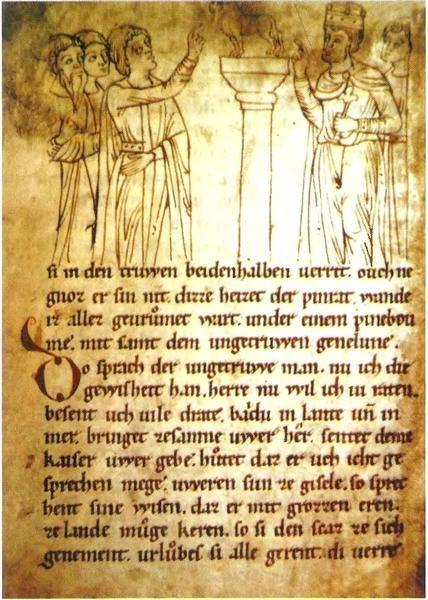 si in den truwen beidenhalben uerrit. ouch ne
gnoz er sin nit. dizze heizet der pinrat. wande
iz allez geurůmet wart. under einem pinebou
me. mit samt dem ungetruwen genelune.
So sprach der ungetruwe man. nu ich die
gewisheit han. herre nu wil ich iu raten.
besent uch uile drate. in lante uñ in
mer. bringet zesamne uwer her. sentet deme
kaiser uwer gebe. hůtet daz er uch icht ge
sprechen mege. uweren sun ze gisele. so sprec
hent sine wisen. daz er mit grozzen eren.
ze lande můge keren. so si den scaz ze sich
genement. urlůbes si alle gerent. di uerre